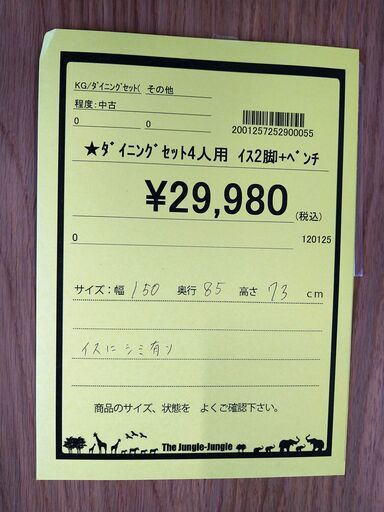 KG/ﾀﾞｲﾆﾝｸﾞｾｯﾄ( その他
程度:中古
0 0
2001257252900055
★ﾀﾞｲﾆﾝｸﾞｾｯﾄ4人用 ｲｽ2脚+ﾍﾞﾝﾁ
¥29,980
(税込)
0 120125
サイズ:幅 150 奥行 85 高さ 73 cm
イスにシミ有り
商品のサイズ、状態を よくご確認下さい。
The Jungle-Jungle